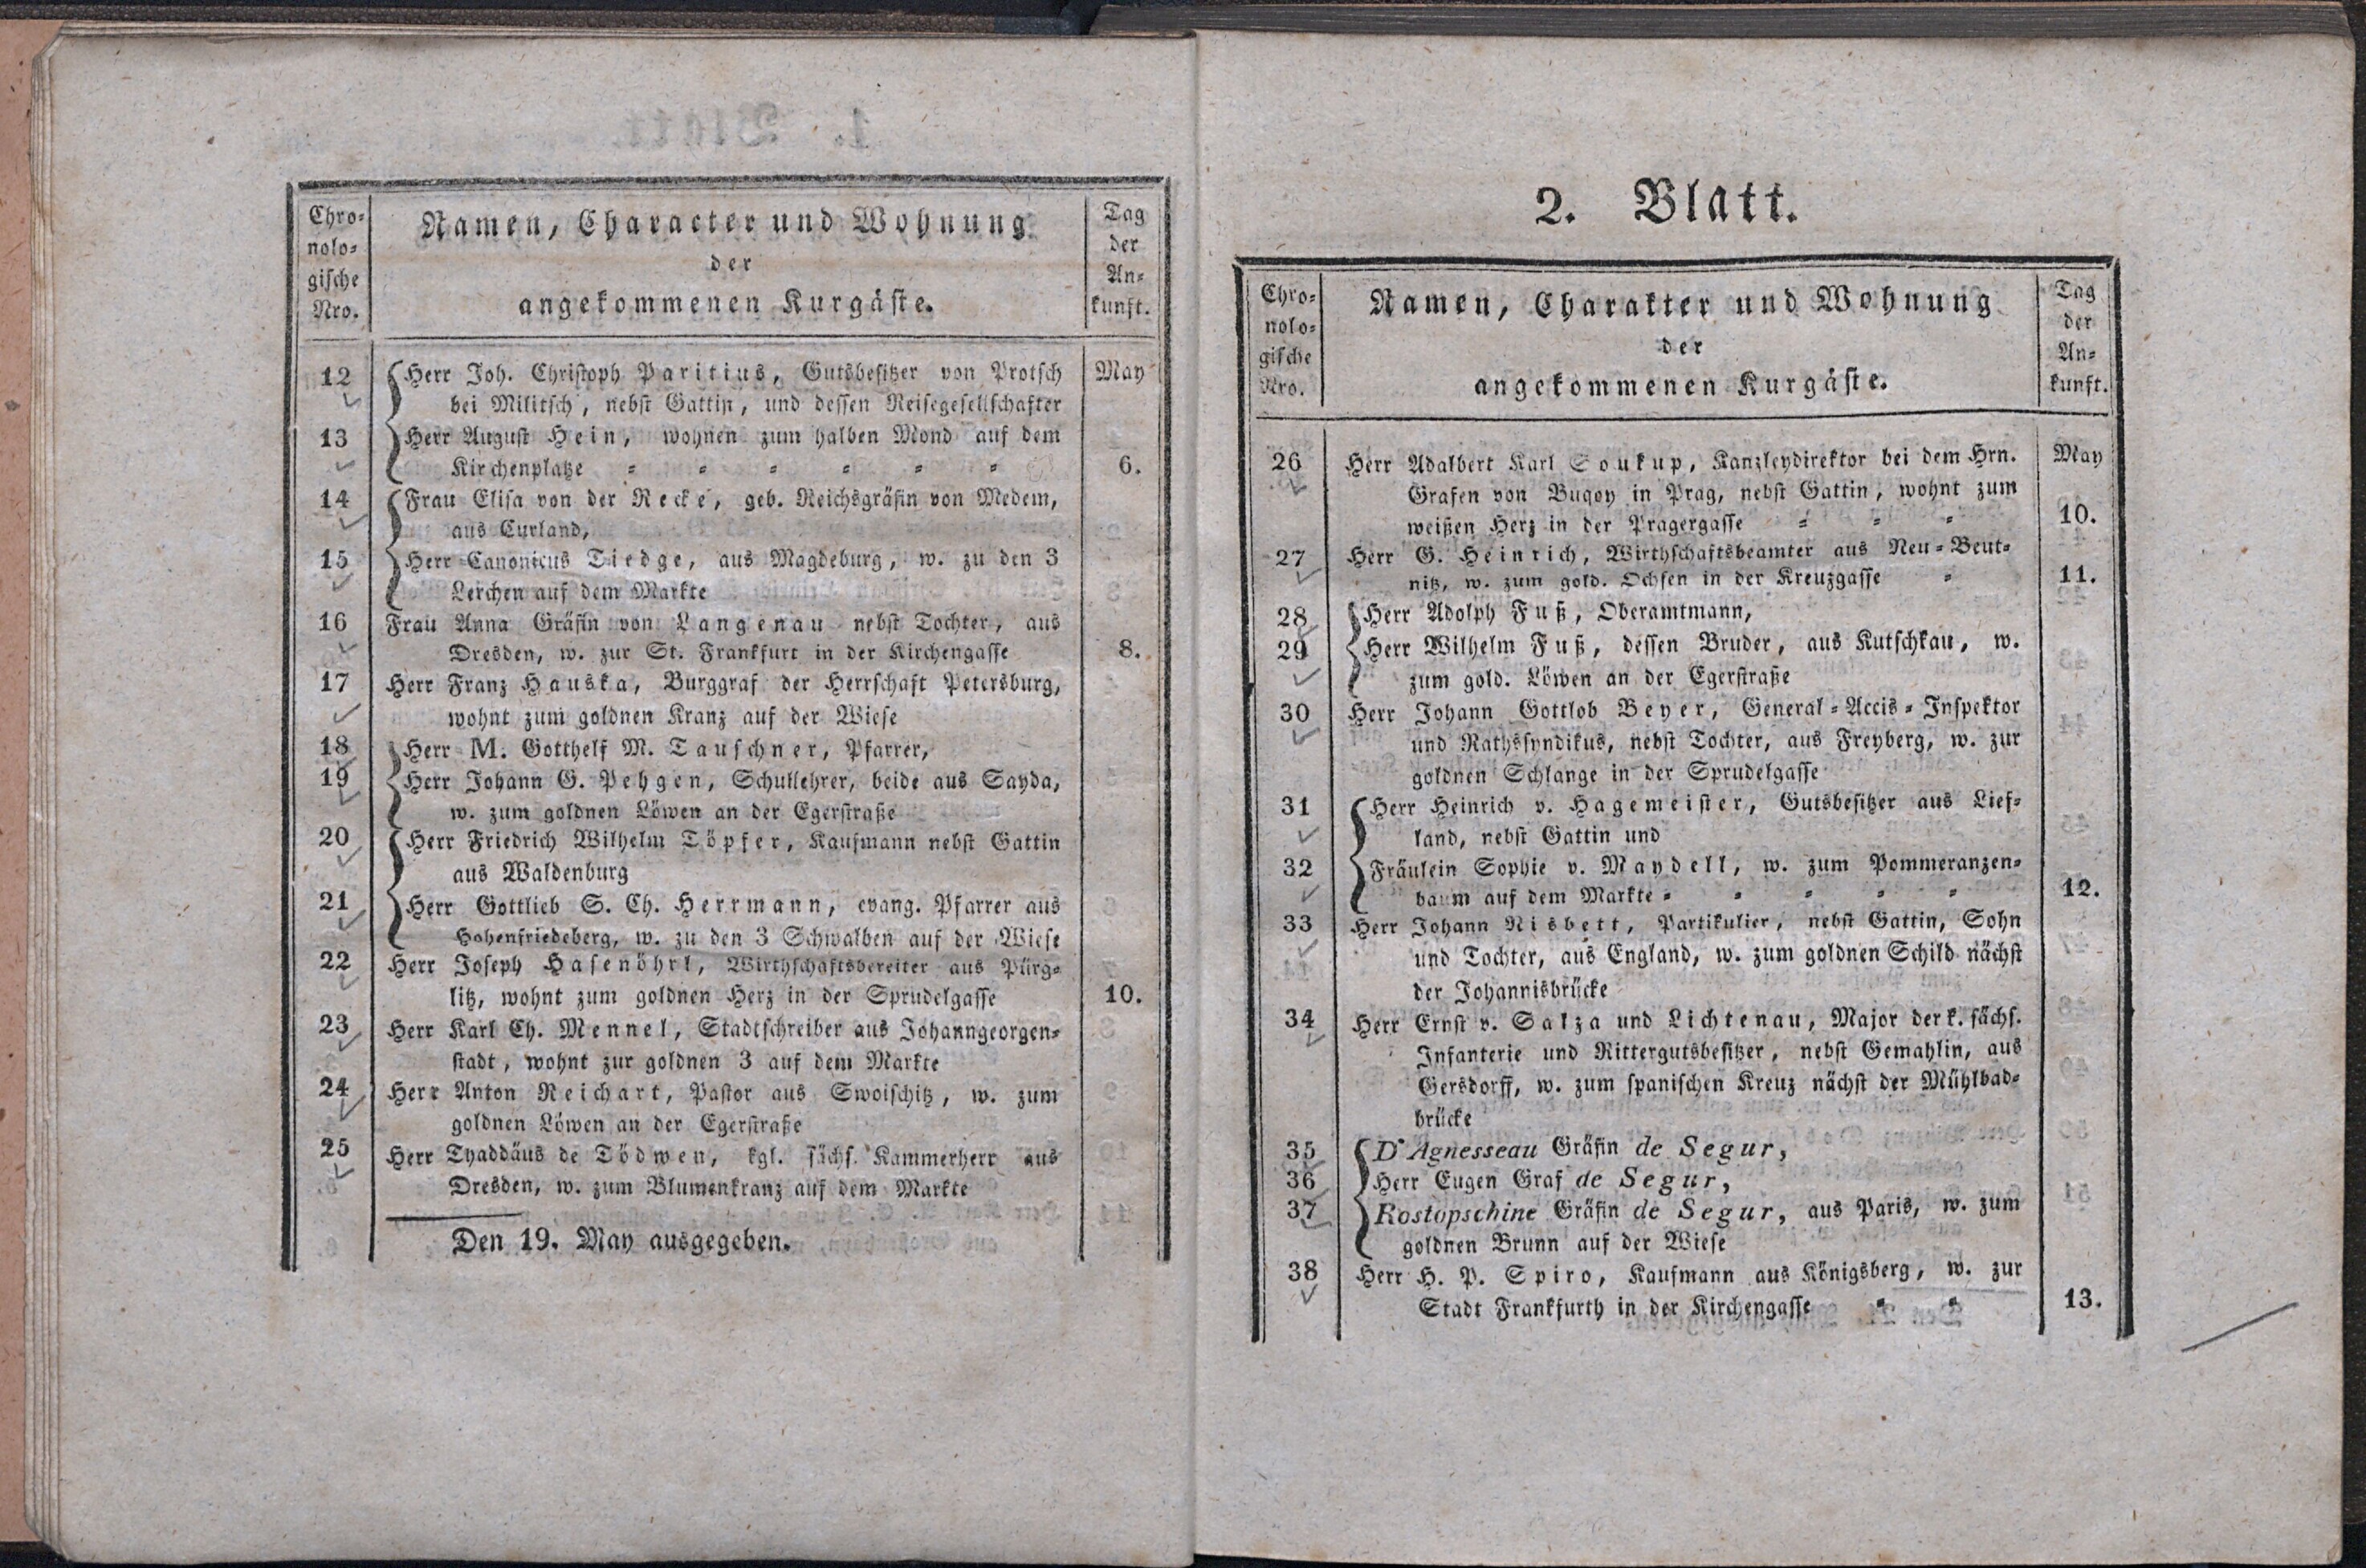 Chro-
nolo-
gische
Nro.
Namen, Character und Wohnung
der
angekommenen Kurgäste.
Tag
der
An-
kunft.
12 Herr Joh. Christoph Paritius, Gutsbesitzer von Protsch May
bei Militsch, nebst Gattin, und dessen Reisegesellschafter
13 Herr August Hein, wohnen zum halben Mond auf dem
Kirchenplatze = = = = = = 6.
14 Frau Elisa von der Recke, geb. Reichsgräfin von Medem,
aus Curland,
15 Herr Canonicus Tiedge, aus Magdeburg, w. zu den 3
Lerchen auf dem Markte
16 Frau Anna Gräfin von Langenau nebst Tochter, aus
Dresden, w. zur St. Frankfurt in der Kirchengasse 8.
17 Herr Franz Hauska, Burggraf der Herrschaft Petersburg,
wohnt zum goldnen Kranz auf der Wiese
18 Herr M. Gotthelf M. Tauschner, Pfarrer,
19 Herr Johann G. Pehgen, Schullehrer, beide aus Sayda,
w. zum goldnen Löwen an der Egerstraße
20 Herr Friedrich Wilhelm Töpfer, Kaufmann nebst Gattin
aus Waldenburg
21 Herr Gottlieb S. Ch. Herrmann, evang. Pfarrer aus
Hohenfriedeberg, w. zu den 3 Schwalben auf der Wiese
22 Herr Joseph Hasenöhrl, Wirthschaftsbereiter aus Pürg-
litz, wohnt zum goldnen Herz in der Sprudelgasse 10.
23 Herr Karl Ch. Mennel, Stadtschreiber aus Johanngeorgen-
stadt, wohnt zur goldnen 3 auf dem Markte
24 Herr Anton Reichart, Pastor aus Swoischitz, w. zum
goldnen Löwen an der Egerstraße
25 Herr Thaddäus de Tödwen, kgl. sächs. Kammerherr aus
Dresden, w. zum Blumenkranz auf dem Markte
Den 19. May ausgegeben.
2. Blatt.
Chro-
nolo-
gische
Nro.
Namen, Charakter und Wohnung
der
angekommenen Kurgäste.
Tag
der
An-
kunft.
26 Herr Adalbert Karl Soukup, Kanzleydirektor bei dem Hrn. May
Grafen von Buqoy in Prag, nebst Gattin, wohnt zum
weißen Herz in der Pragergasse = = = 10.
27 Herr G. Heinrich, Wirthschaftsbeamter aus Neu-Beut-
nitz, w. zum gold. Ochsen in der Kreuzgasse = 11.
28 Herr Adolph Fuß, Oberamtmann,
29 Herr Wilhelm Fuß, dessen Bruder, aus Kutschkau, w.
zum gold. Löwen an der Egerstraße
30 Herr Johann Gottlob Beyer, General-Accis-Inspektor
und Rathssyndikus, nebst Tochter, aus Freyberg, w. zur
goldnen Schlange in der Sprudelgasse
31 Herr Heinrich v. Hagemeister, Gutsbesitzer aus Lief-
land, nebst Gattin und
32 Fräulein Sophie v. Maydell, w. zum Pommeranzen-
baum auf dem Markte = = = = = 12.
33 Herr Johann Nisbett, Partikulier, nebst Gattin, Sohn
und Tochter, aus England, w. zum goldnen Schild nächst
der Johannisbrücke
34 Herr Ernst v. Salza und Lichtenau, Major der k. sächs.
Infanterie und Rittergutsbesitzer, nebst Gemahlin, aus
Gersdorff, w. zum spanischen Kreuz nächst der Mühlbad-
brücke
35 D'Agnesseau Gräfin de Segur,
36 Herr Eugen Graf de Segur,
37 Rostopschine Gräfin de Segur, aus Paris, w. zum
goldnen Brunn auf der Wiese
38 Herr H. P. Spiro, Kaufmann aus Königsberg, w. zur
Stadt Frankfurth in der Kirchengasse = = 13.